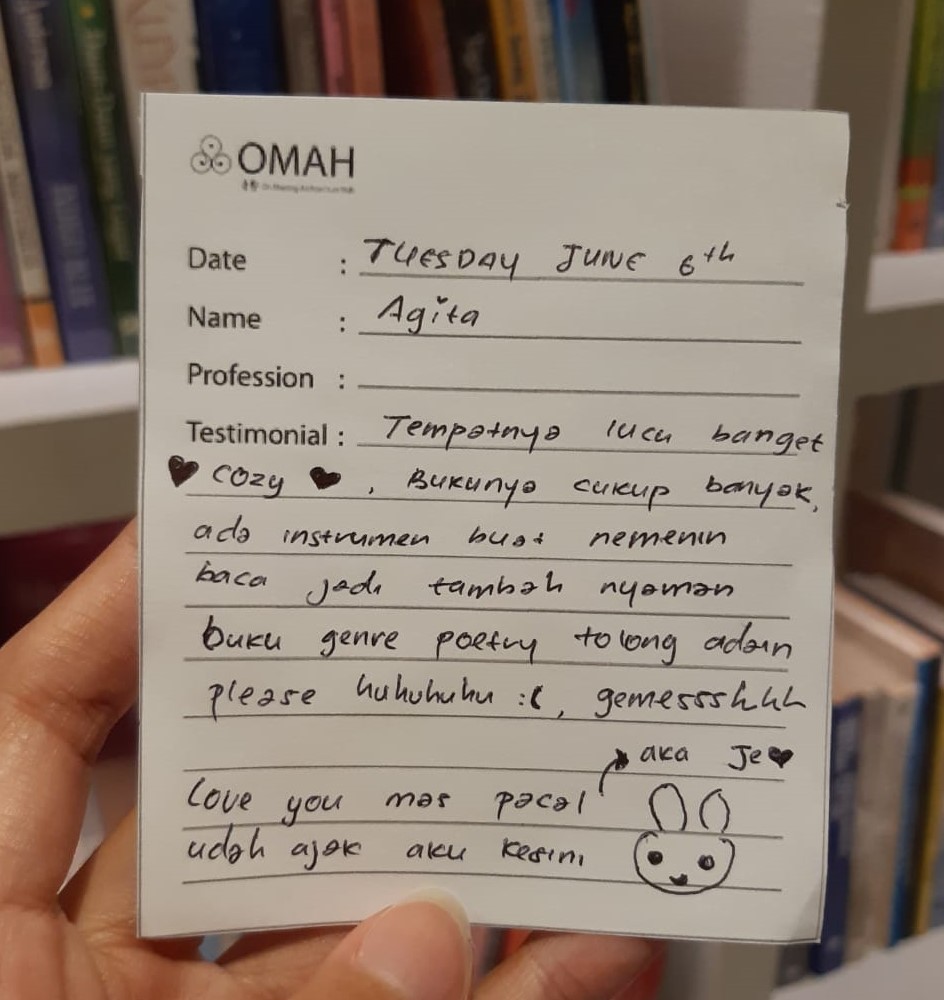 OMAH
Date : TUESDAY JUNE 6th
Name : Agita
Profession :
Testimonial : Tempatnya lucu banget
♥ cozy ♥, Bukunya cukup banyak,
ada instrumen buat nemenin
baca jadi tambah nyaman
buku genre poetry tolong adain
please huhuhuhu :(, gemessshhh
aka Je♥
Love you mas pacal
udah ajak aku kesini